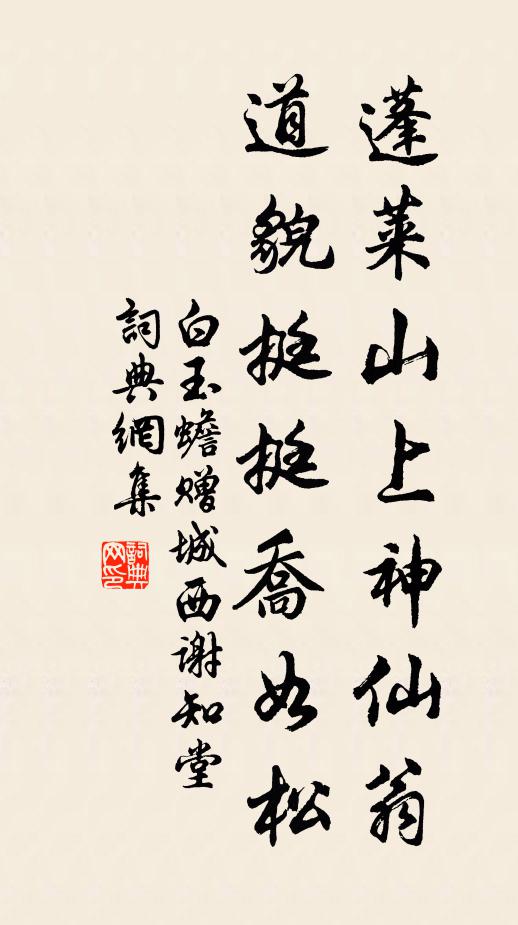 蓬萊山上神仙翁
道貌挺挺喬如松
白玉蟾贈城西谢知堂
詞典網集
詞典
网印